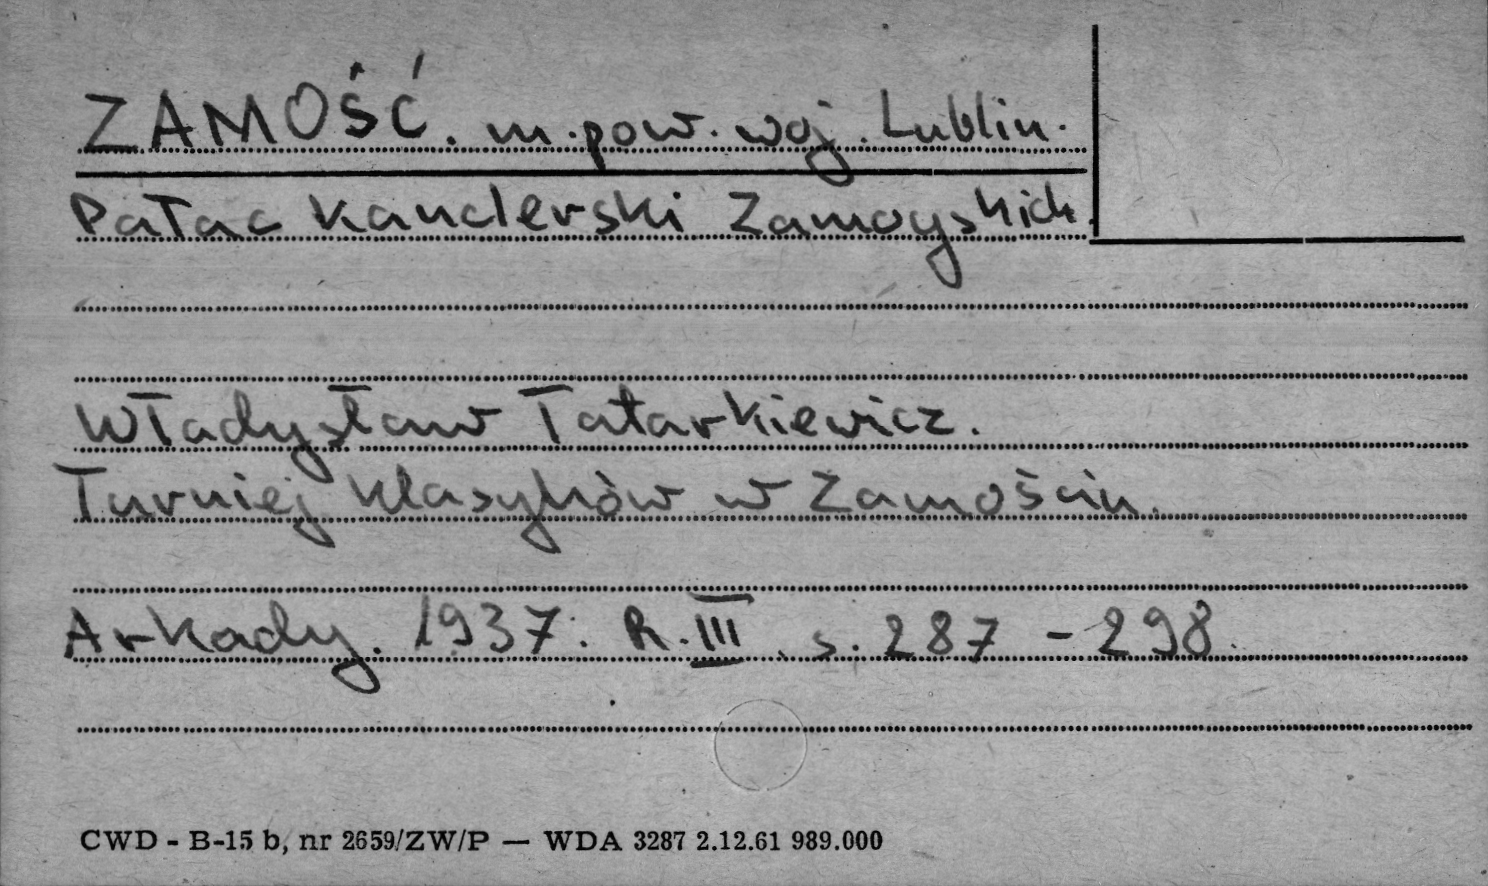 ZAMOŚĆ. m. pow. woj. Lublin.
Pałac Kanclerski Zamoyskich.
Władysław Tatarkiewicz.
Turniej klasyków w Zamościu.
Arkady. 1937. R. III. s. 287 - 298.
CWD - B-15 b, nr 2659/ZW/P — WDA 3287 2.12.61 989.000